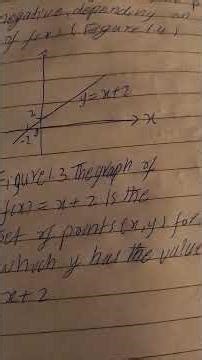 negative, depending on
of f(x) (Figure 1.4)
y = x+2
2
-2
x
Figure 1.3 The graph of
f(x) = x + 2 is the
set of points (x, y) for
which y has the value
x + 2